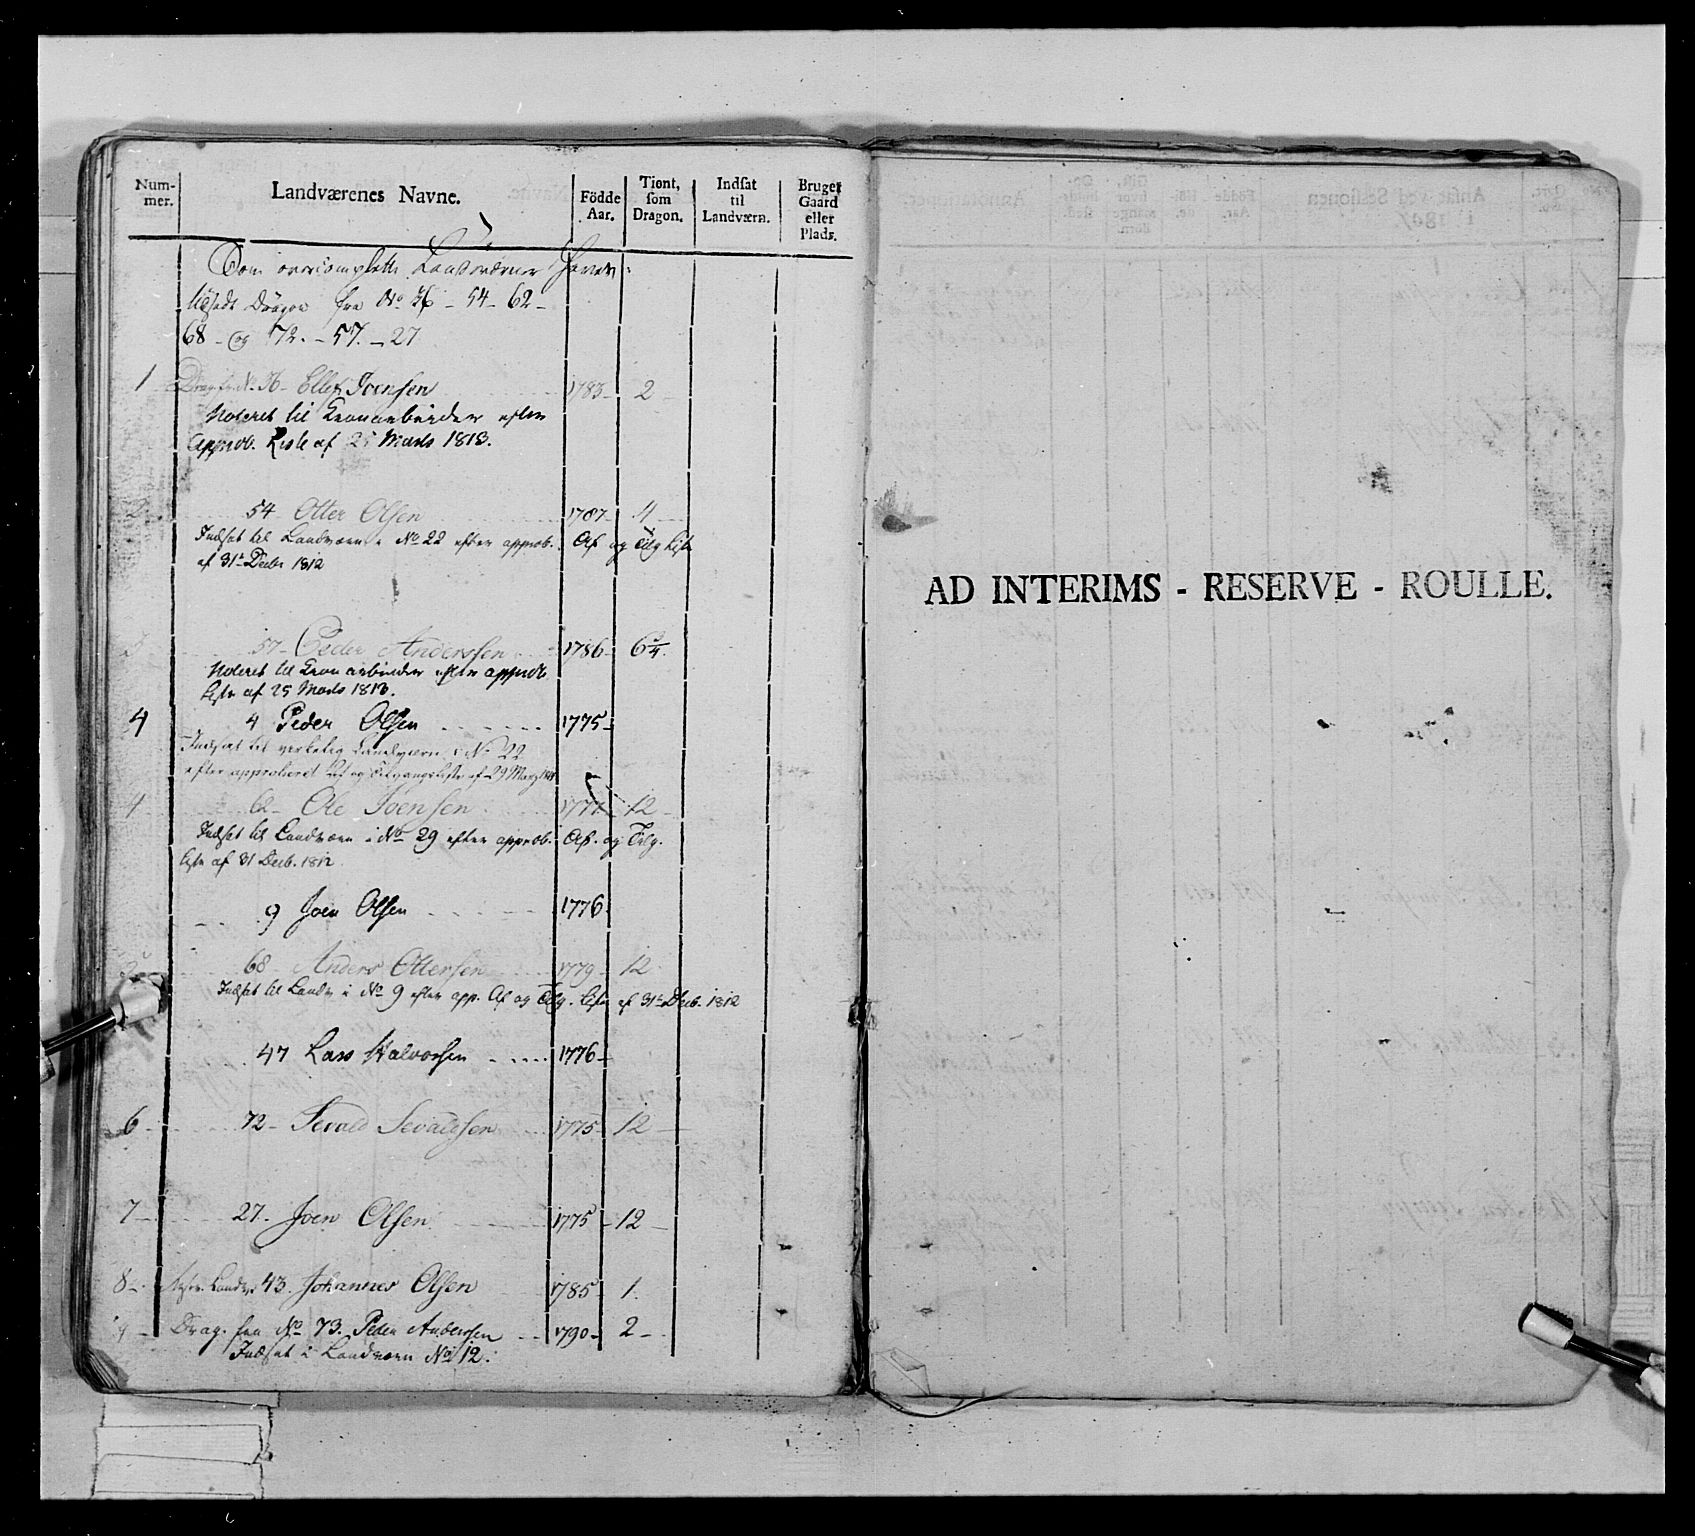 Num-
mer.
Landværenes Navne.
Födde
Aar.
Tiont,
som
Dragon.
Indsat
til
Landværn.
Bruger
Gaard
eller
Plads.
Som overcomplette Landværner
Dragon fra No 36 - 54 - 62 -
68 - og 72. - 57. - 27
1 Drag. fr. No. 36 - Ellef Joensen 1783 - 2 -
Noteret til Kronarbeider efter
Approb. Liste af 25 Marts 1813.
2 54 Otter Olsen 1787 - 4
Indsat til Landværn i No 22 efter approb. Af og Tilg Liste
af 31te Decbr 1812
3 57 - Peder Anderssen 1786 6 3/4.
Noteret til Kronarbeider efter approb
Liste af 25 Marts 1813.
4 4 Peder Olsen 1775 -
Indsat til virkelig Landværn i No 22
efter approberet Af og Tilgangsliste af 29 Martz
4 62 - Ole Joensen 1771 - 12 -
Indsat til Landværn i No 29 efter approb. Af. og Tilg.
Liste af 31 Decb. 1812
9 Joen Olsen 1776.
68 - Anders Ottersen 1779 - 12
Indsat til Landv i No 9 efter app. Af og Tilg. Liste af 31te Decb. 1812
47 Lars Halvorsen 1776 -
6 - 72 - Sevald Sevaldsen 1775 - 12 -
7 - 27. Joen Olsen. 1775 - 12 -
8 - Landv: 43. Johannes Olsen 1785 1.
9 - Drag. fra No 73. Peder Anderssen 1790 - 2 -
Indsat i Landværn No 12.
AD INTERIMS - RESERVE - ROULLE.